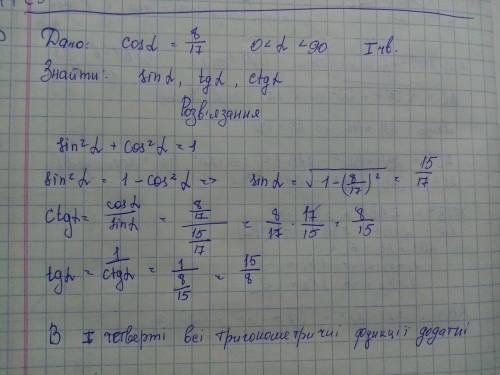 Дано: cosα = 8/17 0<α<90 I чв.
Знайти: sinα, tgα, ctgα
Розв'язання
sin²α + cos²α = 1
sin²α = 1 - cos²α => sinα = √(1-(8/17)²) = 15/17
ctgα = cosα/sinα = (8/17)/(15/17) = 8/17 · 17/15 = 8/15
tgα = 1/ctgα = 1/(8/15) = 15/8
В I четверті всі тригонометричні функції додатні